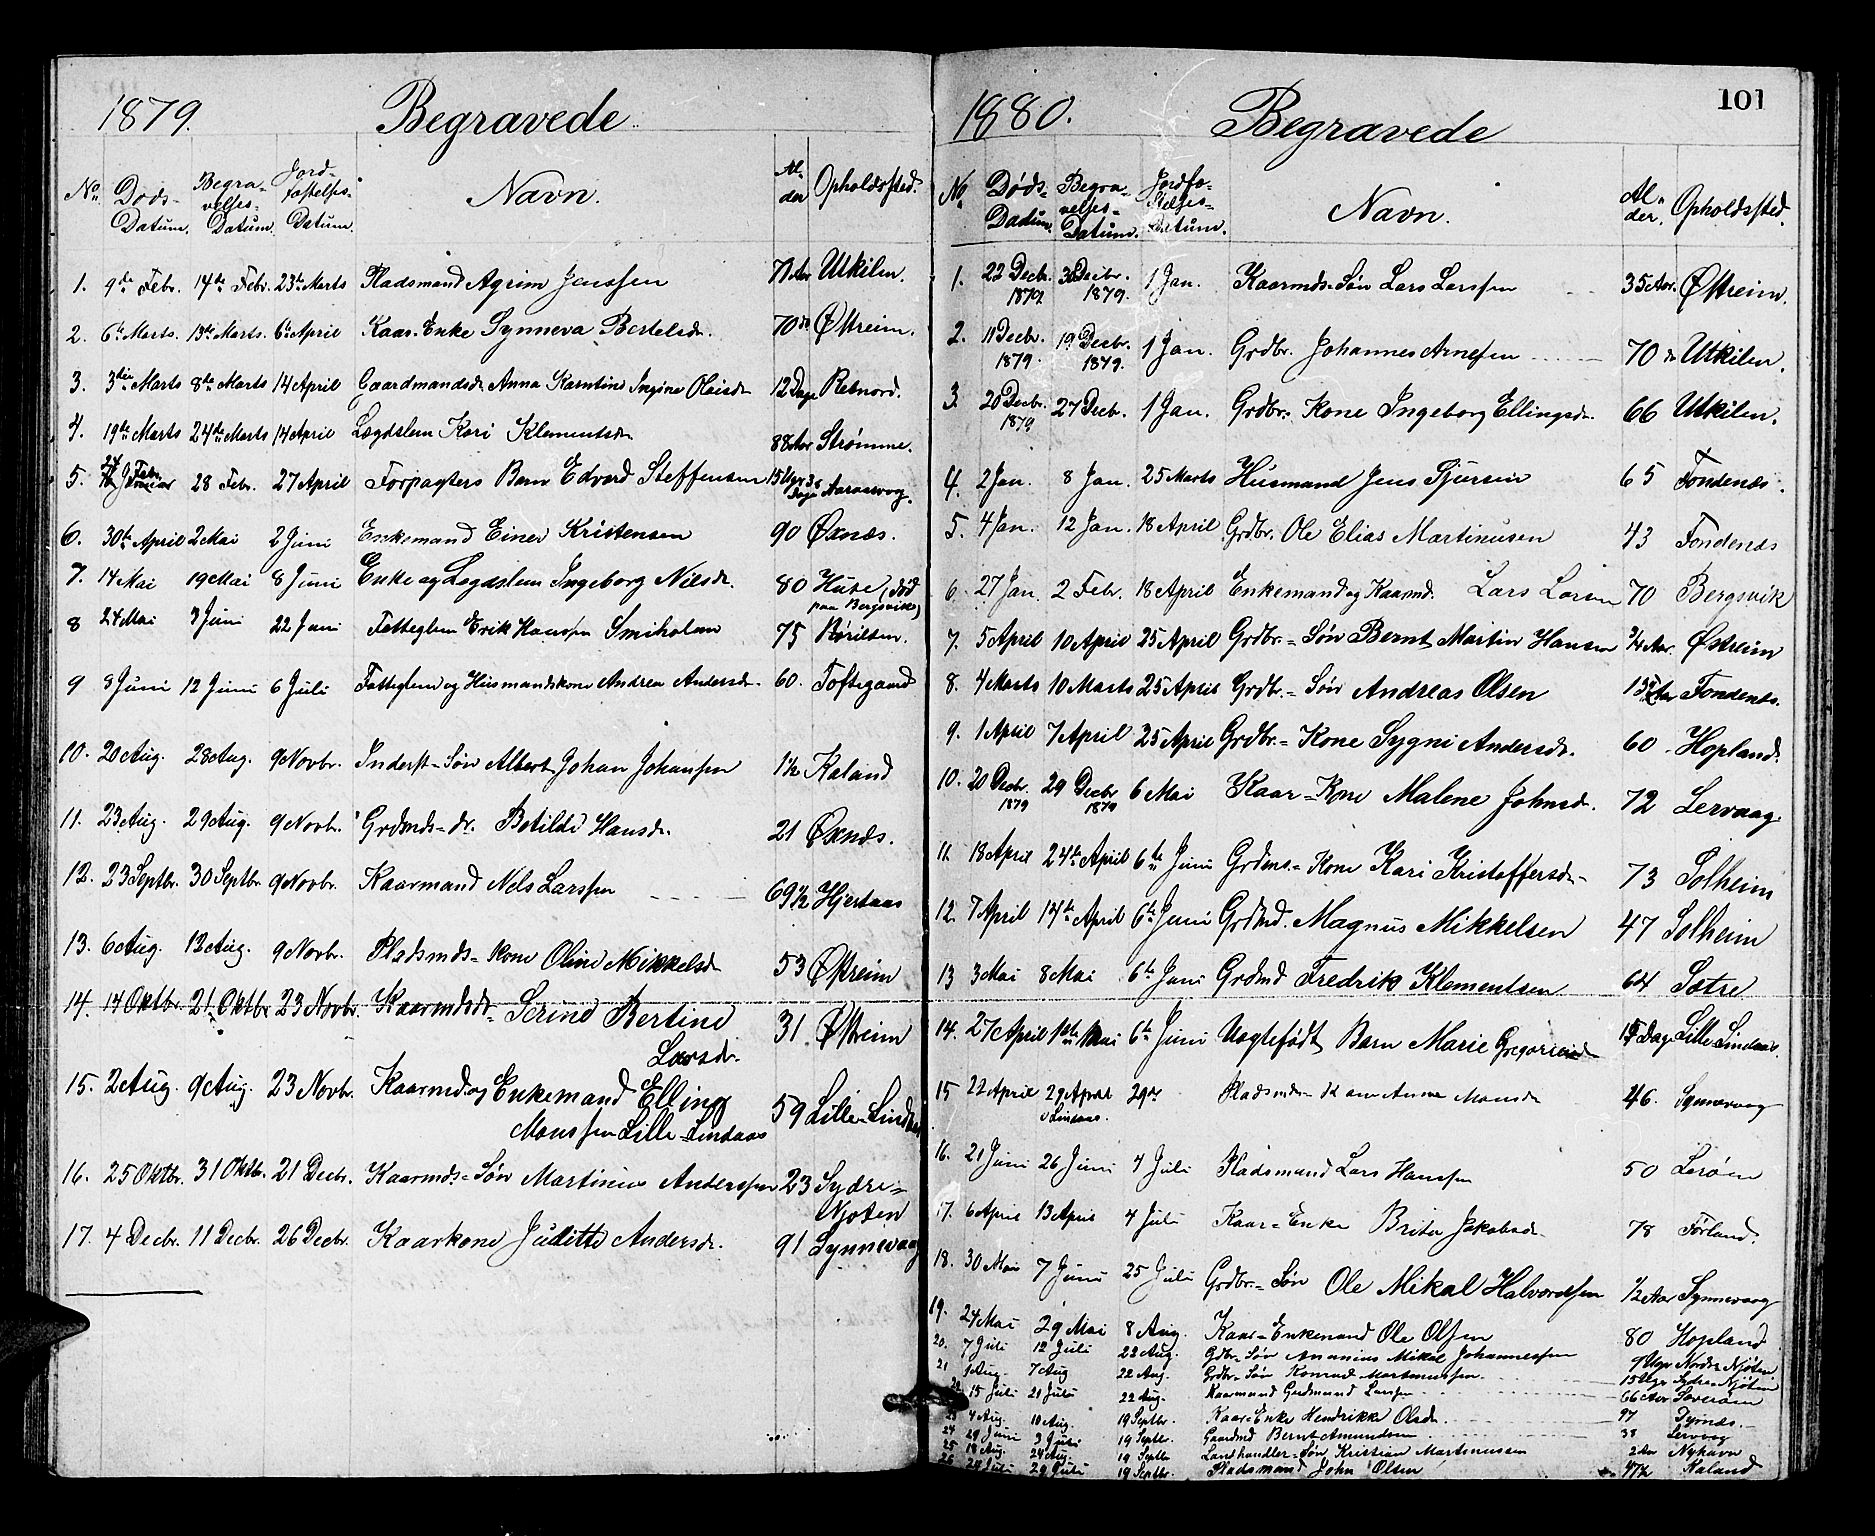 1879. Begravede
No. Døds-Datum. Begravelses-Datum. Jordfæstelses-Datum. Navn. Alder Opholdssted.
1. 9de Febr. 14de Febr. 23de Marts Pladsmand Agrim Jenssen 71 Aar Utkilen.
2. 6te Marts. 13de Marts. 6te April Kaar-Enke Synneva Bertelsdr. 70 do Østreim.
3. 3die Marts 8de Marts 14 April Gaardmandsdr. Anna Karntine Ingine Olaisdr 12 Dage Retnord.
4. 19de Marts 24de Marts 14 April Lægdslem Kari Klementsdr 88 Aar Strømme.
5. 24 Febr. 28 Febr. 27 April Forpagters Barn Edvard Steffensen 15 Uger 3 Dage
6. 30te April 2 Mai 2 Juni Enkemand Einer Kristensen 90 Øxnæs.
7. 14 Mai 19 Mai 8 Juni Enke og Lægdslem Ingeborg Nilsdr. 80 Huse (død
paa Bergsvik)
8 24 Mai 3 Juni 22 Juni Fattiglem Erik Hanssen Smiholmen 75
9 8 Juni 12 Juni 6 Juli Fattiglem og Husmandskone Andrea Andersdr. 60. Toftegaard
10. 20 Aug. 28 Aug. 9 Novbr. Inderst-Søn Albert Johan Johansen 1½ Kaland
11. 23 Aug. 29 Aug. 9 Novbr. Grdmds-dr. Botilde Hansdr. 21 Øxnæs.
12. 23 Septbr. 30 Septbr. 9 Novbr. Kaarmand Nels Larssen 69½ Hjertaas
13. 6 Aug. 12 Aug. 9 Novbr. Pladsmds-kone Oline Mikkelsdr 53 Østreim
14. 14 Oktbr. 21 Oktbr 23 Novbr. Kaarmdsdr- Serine Bertine 31. Østreim
Larsdr.
15. 2 Aug. 9 Aug. 23 Novbr. Kaarmd. og Enkemand Elling 59 Lille-Lindaas
Monssen Lille-Lindaas
16. 25 Oktbr. 31 Oktbr. 21 Decbr. Kaarmds-Søn Martinius Anderssen 23 Sydre-
Njøten
17. 4 Decbr. 11 Decbr. 26 Decbr. Kaarkone Juditte Andersdr. 91 Synnevaag
1880. Begravede 101
No Døds-Datum. Begravelses-Datum. Jordfæstelses-Datum. Navn. Alder. Opholdssted.
1. 22 Decbr. 1879 30 Decbr. 1879. 1 Jan. Kaarmds-Søn Lars Larssen 35 Aar. Østreim.
2. 11 Decbr. 1879. 19 Decbr. 1879. 1 Jan. Grdbr. Johannes Arnesen 70 do Utkilen.
3. 20 Decbr. 1879 27 Decbr. 1 Jan. Grdbr. Kone Ingeborg Ellingsdr. 66 Utkilen.
4. 2 Jan. 8 Jan. 25 Marts Husmand Jens Sjursen 65 Fondenæs.
5. 4 Jan. 12 Jan. 18 April Grdbr. Ole Elias Martinusen 43 Fondenæs
6. 27 Jan. 2 Febr. 18 April Enkemand og Kaarmd. Lars Larsen 70 Bergsvik
7. 5 April 10 April 25 April Grdbr.-Søn Bernt Martin Hansen ¾ Aar. Østreim
8. 4 Marts 10 Marts 25 April Grdbr.-Søn Andreas Olsen 13 Aar Fondenæs.
9. 1 April 7 April 25 April Grdbr.-Kone Sygni Andersdr. 60 Hopland.
10. 20 Decbr. 1879 29 Decbr 1879 6 Mai Kaar-Kone Malene Johnsdr. 72 Lervaag.
11. 18 April 24de April 6te Juni Grdms-Kone Kari Kristoffersdr- 73 Solheim
12. 7 April 14de April 6te Juni Grdmd. Magnus Mikkelsen 47 Solheim
13 3 Mai 8 Mai 6te Juni Grdmd Fredrik Klementsen 64 Sætre
14. 27 April 1ste Mai 6te Juni Uægtefødt Barn Marie Dage Lille Lindaas.
15 22 April 29 April Lindaas. 29 Pladsmds-Kone Anne Monsdr 46. Synnevaag
16. 21 Juni 26 Juni 4 Juli Pladsmand Lars Hanssen 50 Lerøen
17. 6 April 13 April 4 Juli Kaar-Enke Brita Jakobsdr. 78 Førland.
18. 30 Mai 7 Juni 25 Juli Grdbr-Søn Ole Mikal Halvordssen ½ Aar Synnevaag
19. 24 Mai 29 Mai 8 Aug. Kaar-Enkemand Ole Olssen 80 Hopland
20. 7 Juli 12 Juli 22 Aug. Gdbr-Søn Ananius Mikal Johannessen 9 Uger Nordre Njøten
21 1 Aug. 7 Aug 22 Aug. Grdbr-Søn Konrad Martinussen. 15 Uger Sydre Njøten
22 15 Juli 21 Juli 22 Aug. Kaarmand Gudmund Larssen 66 Aar
23 4 Aug. 10 Aug. 19 Septbr. Kaar-Enke Hendrikke Olsdr. 97
24 29 Juni 3 Juli 19 Septbr. Gaardmd Bernt Amundsen 38 Lervaag
25 18 Aug. 24 Aug. 19 Septbr Landhandler-Søn Kristian Martinussen 2 Aar Nyhavn
26 24 Juli 29 Juli 19 Septbr. Pladsmand John Olsen 47½ Kaland